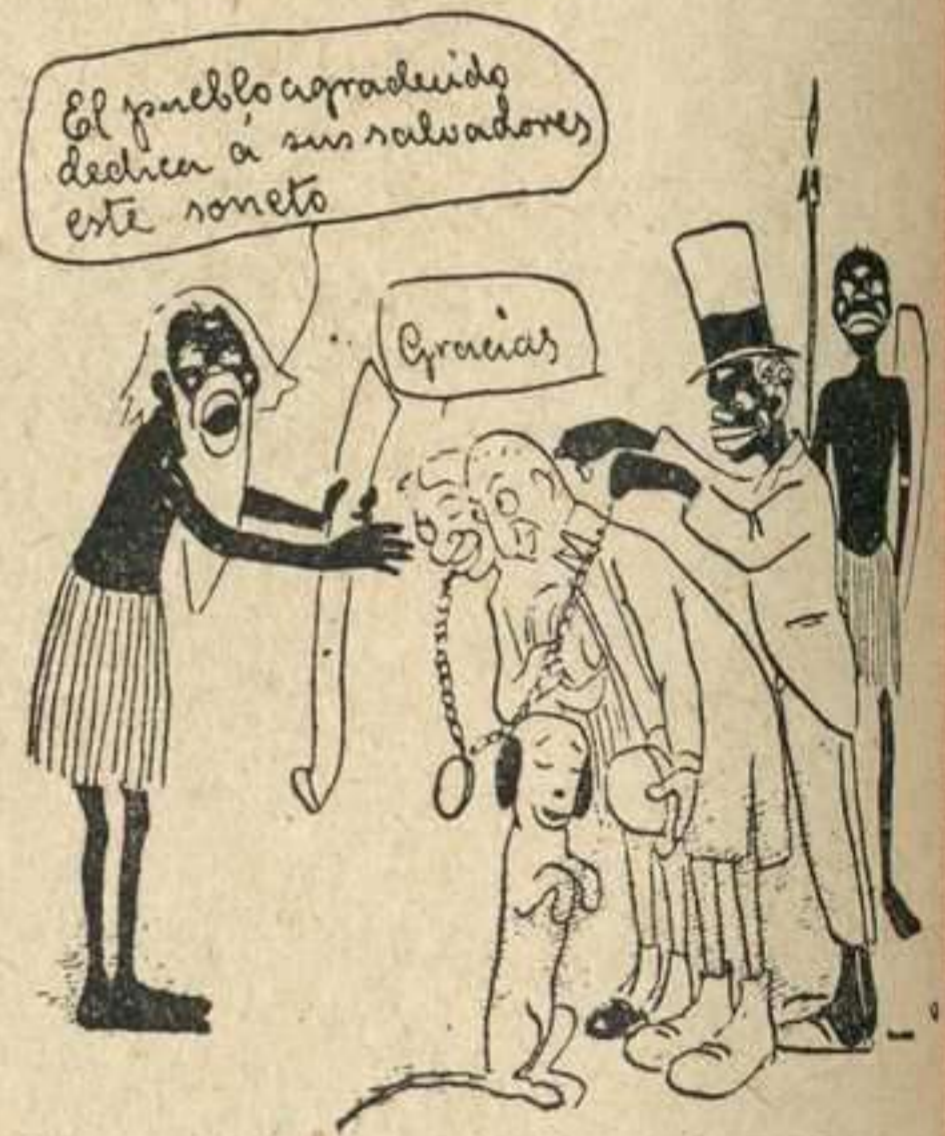 El pueblo agradecido
dedica á sus salvadores
este soneto
Gracias